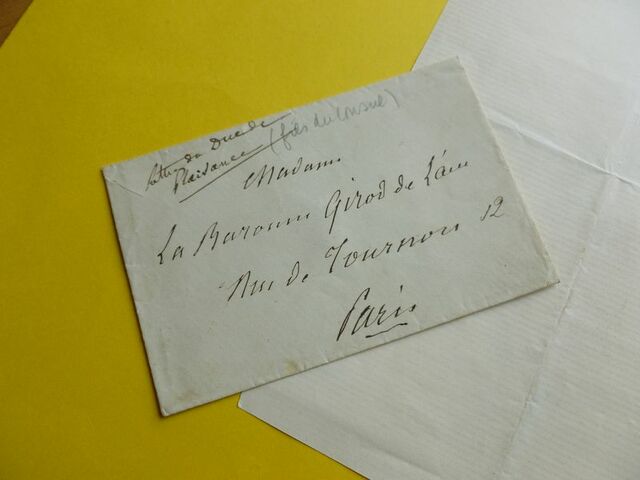 lettre du Duc de
Plaisance (fils du Consul)
Madame
La Baronne Girod de L'ain
Rue de Tournon 12
Paris